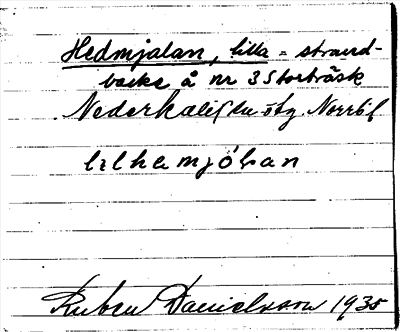 Hedmjalan, lilla = strand-
backe å nr 3 Storträsk
Nederkalix
lilhemjólan
Ruben Danielsson 1935